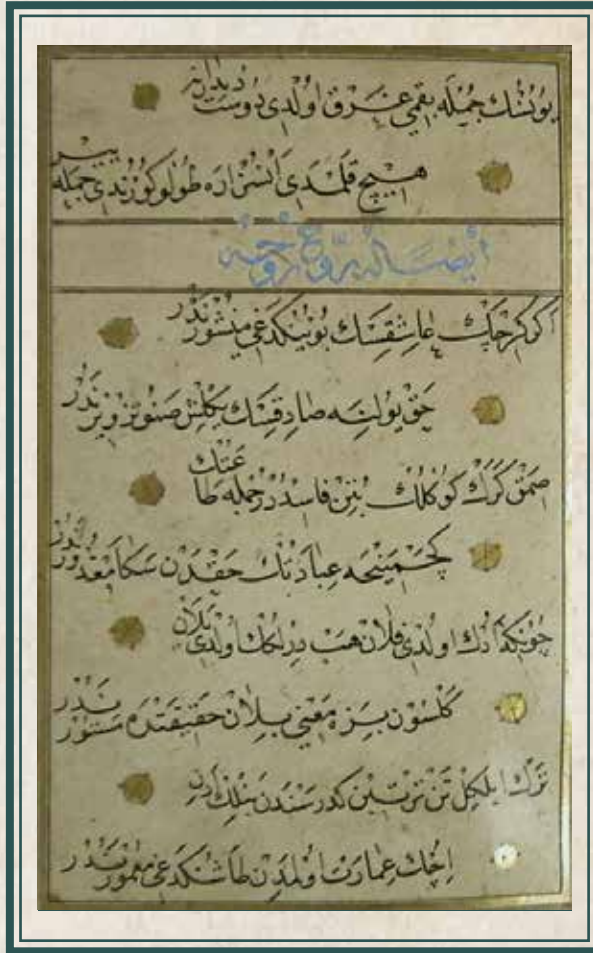 يونسك جمله رقمي غرق اولدي دوست ديداينه
هيچ قلمدي انسز اره طولو كوزندي جمله يير
ايضا له روح روحه
اكر كرچك عاشقسك بوينكدغي منشور ندر
حق يولنه صادقسك يكلش صنو تزوير ندر
اصمق كرك كوكلك بتن فاسددر جمله طاعتك
كچمينجه عبادتك حقدن سكا مقدور ندر
چونكه آدك اولدي فلان هب ديرلكك اولدي يلان
كلسون بزه معني بيلان حقيقتده مستور ندر
ترك ايلكل تن ترتيبن كدر سندن بنلك ادن
ايچك عمارت اولمدن طاشكدغي معمور ندر